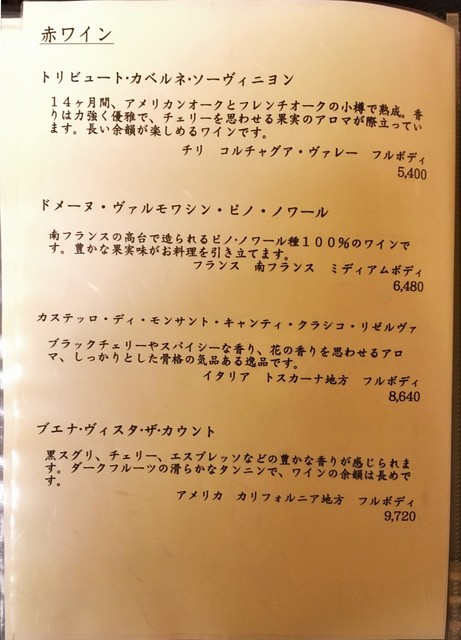 赤ワイン
トリビュート・カベルネ・ソーヴィニヨン
１４ヶ月間、アメリカンオークとフレンチオークの小樽で熟成。香
りは力強く優雅で、チェリーを思わせる果実のアロマが際立ってい
ます。長い余韻が楽しめるワインです。
チリ　コルチャグア・ヴァレー　フルボディ
5,400
ドメーヌ・ヴァルモワシン・ピノ・ノワール
南フランスの高台で造られるピノ・ノワール種１００％のワインで
す。豊かな果実味がお料理を引き立てます。
フランス　南フランス　ミディアムボディ
6,480
カステッロ・ディ・モンサント・キャンティ・クラシコ・リゼルヴァ
ブラックチェリーやスパイシーな香り、花の香りを思わせるアロ
マ、しっかりとした骨格の気品ある逸品です。
イタリア　トスカーナ地方　フルボディ
8,640
ブエナ・ヴィスタ・ザ・カウント
黒スグリ、チェリー、エスプレッソなどの豊かな香りが感じられま
す。ダークフルーツの滑らかなタンニンで、ワインの余韻は長めで
す。
アメリカ　カリフォルニア地方　フルボディ
9,720